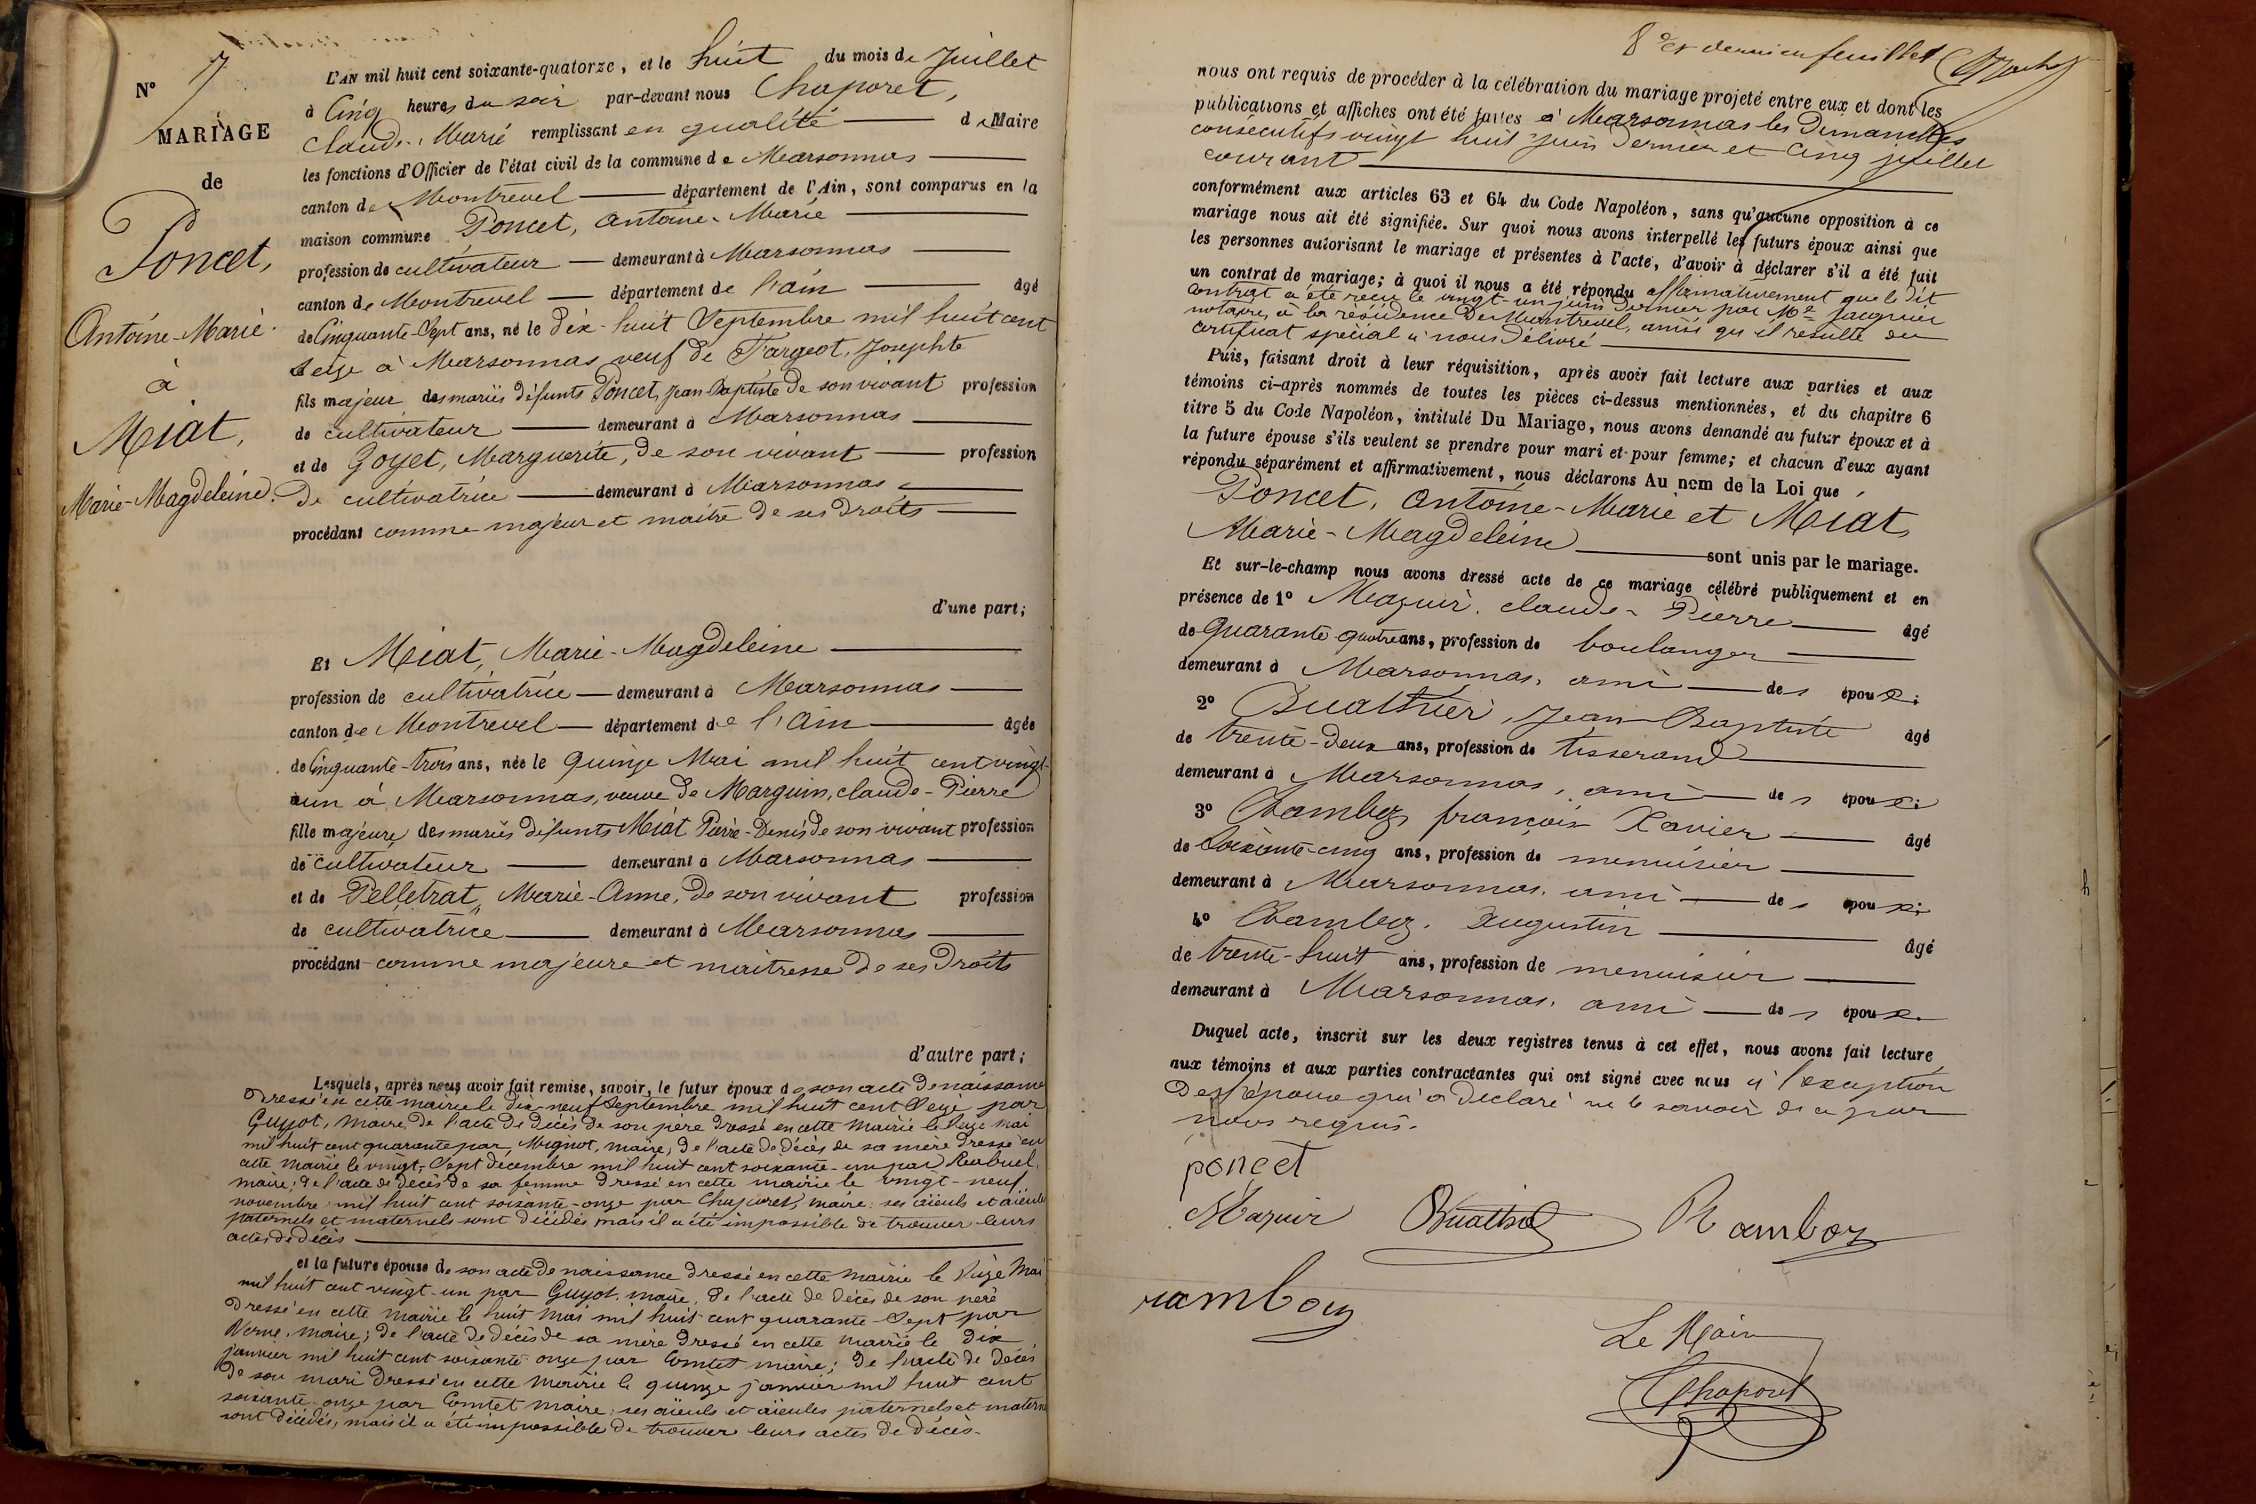 N° 7
MARIAGE
de
Poncet,
Antoine-Marie
à
Miat,
Marie-Magdeleine.
L'AN mil huit cent soixante-quatorze, et le huit du mois de Juillet
à Cinq heures du soir par-devant nous Chaporet,
Claude-Marie remplissant en qualité de Maire
les fonctions d'Officier de l'état civil de la commune de Marsonnas
canton de Montrevel département de l'Ain, sont comparus en la
maison commune Poncet, Antoine-Marie
profession de cultivateur demeurant à Marsonnas
canton de Montrevel département de l'ain âgé
de Cinquante-Sept ans, né le dix-huit Septembre mil huit cent
Seize à Marsonnas veuf de Fargeot, Josephte
fils majeur des mariés défunts Poncet, Jean-Baptiste de son vivant profession
de cultivateur demeurant à Marsonnas
et de Goyet, Marguerite, de son vivant profession
de cultivatrice demeurant à Marsonnas
procédant comme majeur et maitre de ses droits
d'une part;
Et Miat, Marie-Magdeleine
profession de cultivatrice demeurant à Marsonnas
canton de Montrevel département de l'Ain âgée
de Cinquante-trois ans, née le Quinze Mai mil huit cent vingt-
un à Marsonnas, veuve de Marguin, claude-Pierre
fille majeure des mariés défunts Miat Pierre-Denis de son vivant profession
de cultivateur demeurant à Marsonnas
et de Pelletrat, Marie-Anne, de son vivant profession
de cultivatrice demeurant à Marsonnas
procédant comme majeure et maitresse de ses droits
d'autre part;
Lesquels, après nous avoir fait remise, savoir, le futur époux de son acte de naissance
dressé en cette mairie le dix-neuf Septembre mil huit cent Seize par
Guyot, maire, de l'acte de décès de son père dressé en cette Mairie le Seize mai
mil huit cent quarante par Mignot, maire, de l'acte de décès de sa mère dressé en
cette Mairie le vingt-Sept décembre mil huit cent soixante-un par Reubuel,
maire; de l'acte de décès de sa femme dressé en cette mairie le vingt-neuf
novembre mil huit cent soixante-onze par Chaporet, maire: ses aïeuls et aïeules
paternels et maternels sont décédés mais il a été impossible de trouver leurs
actes de décès
et la future épouse de son acte de naissance dressé en cette mairie le Seize Mai
mil huit cent vingt-un par Guyot, maire, de l'acte de décès de son père
dressé en cette mairie le huit Mai mil huit cent quarante-Sept par
Verne, maire; de l'acte de décès de sa mère dressé en cette mairie le dix
janvier mil huit cent soixante onze par Comtet maire; de l'acte de décès
de son mari dressé en cette Mairie le quinze janvier mil huit cent
soixante-onze par Comtet maire; ses aïeuls et aïeules paternels et matern
sont décédés, mais il a été impossible de trouver leurs actes de décès.
8e et dernier feuillet
nous ont requis de procéder à la célébration du mariage projeté entre eux et dont les
publications et affiches ont été faites à Marsonnas les Dimanches
consécutifs vingt huit Juin dernier et Cinq juillet
courant
conformément aux articles 63 et 64 du Code Napoléon, sans qu'aucune opposition à ce
mariage nous ait été signifiée. Sur quoi nous avons interpellé les futurs époux ainsi que
les personnes autorisant le mariage et présentes à l'acte, d'avoir à déclarer s'il a été fait
un contrat de mariage; à quoi il nous a été répondu affirmativement que le dit
contrat a été reçu le vingt-un juin dernier par Me Jacquier
notaire, à la résidence de Montrevel, ainsi qu'il résulte du
certificat spécial à nous délivré
Puis, faisant droit à leur réquisition, après avoir fait lecture aux parties et aux
témoins ci-après nommés de toutes les pièces ci-dessus mentionnées, et du chapitre 6
titre 5 du Code Napoléon, intitulé Du Mariage, nous avons demandé au futur époux et à
la future épouse s'ils veulent se prendre pour mari et pour femme; et chacun d'eux ayant
répondu séparément et affirmativement, nous déclarons Au nom de la Loi que
Poncet, Antoine-Marie et Miat,
Marie-Magdeleine sont unis par le mariage.
Et sur-le-champ nous avons dressé acte de ce mariage célébré publiquement et en
présence de 1° Mazuir, claude-Pierre âgé
de Quarante-quatre ans, profession de boulanger
demeurant à Marsonnas, ami des époux;
2° Buathier, Jean-Baptiste âgé
de trente-deux ans, profession de tisserand
demeurant à Marsonnas, ami des époux;
3° Ramboz françois Xavier âgé
de Soixante-cinq ans, profession de menuisier
demeurant à Marsonnas, ami des époux;
4° Ramboz, Augustin âgé
de trente-huit ans, profession de menuisier
demeurant à Marsonnas, ami des époux.
Duquel acte, inscrit sur les deux registres tenus à cet effet, nous avons fait lecture
aux témoins et aux parties contractantes qui ont signé avec nous à l'exception
de l'épouse qui a déclaré ne le savoir de ce par
nous requis.
poncet
Mazuir Buathier Ramboz
ramboz
Le Maire
Chaporet